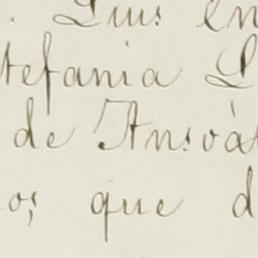 . Luis en
tefania L
de Ansoá
o; que d